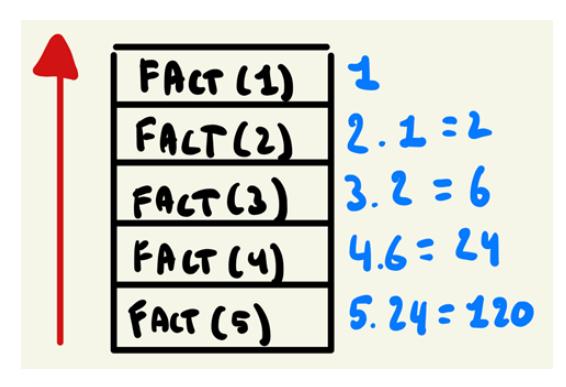 FACT (1) 1
FACT (2) 2.1 = 2
FACT (3) 3.2 = 6
FACT (4) 4.6 = 24
FACT (5) 5.24 = 120